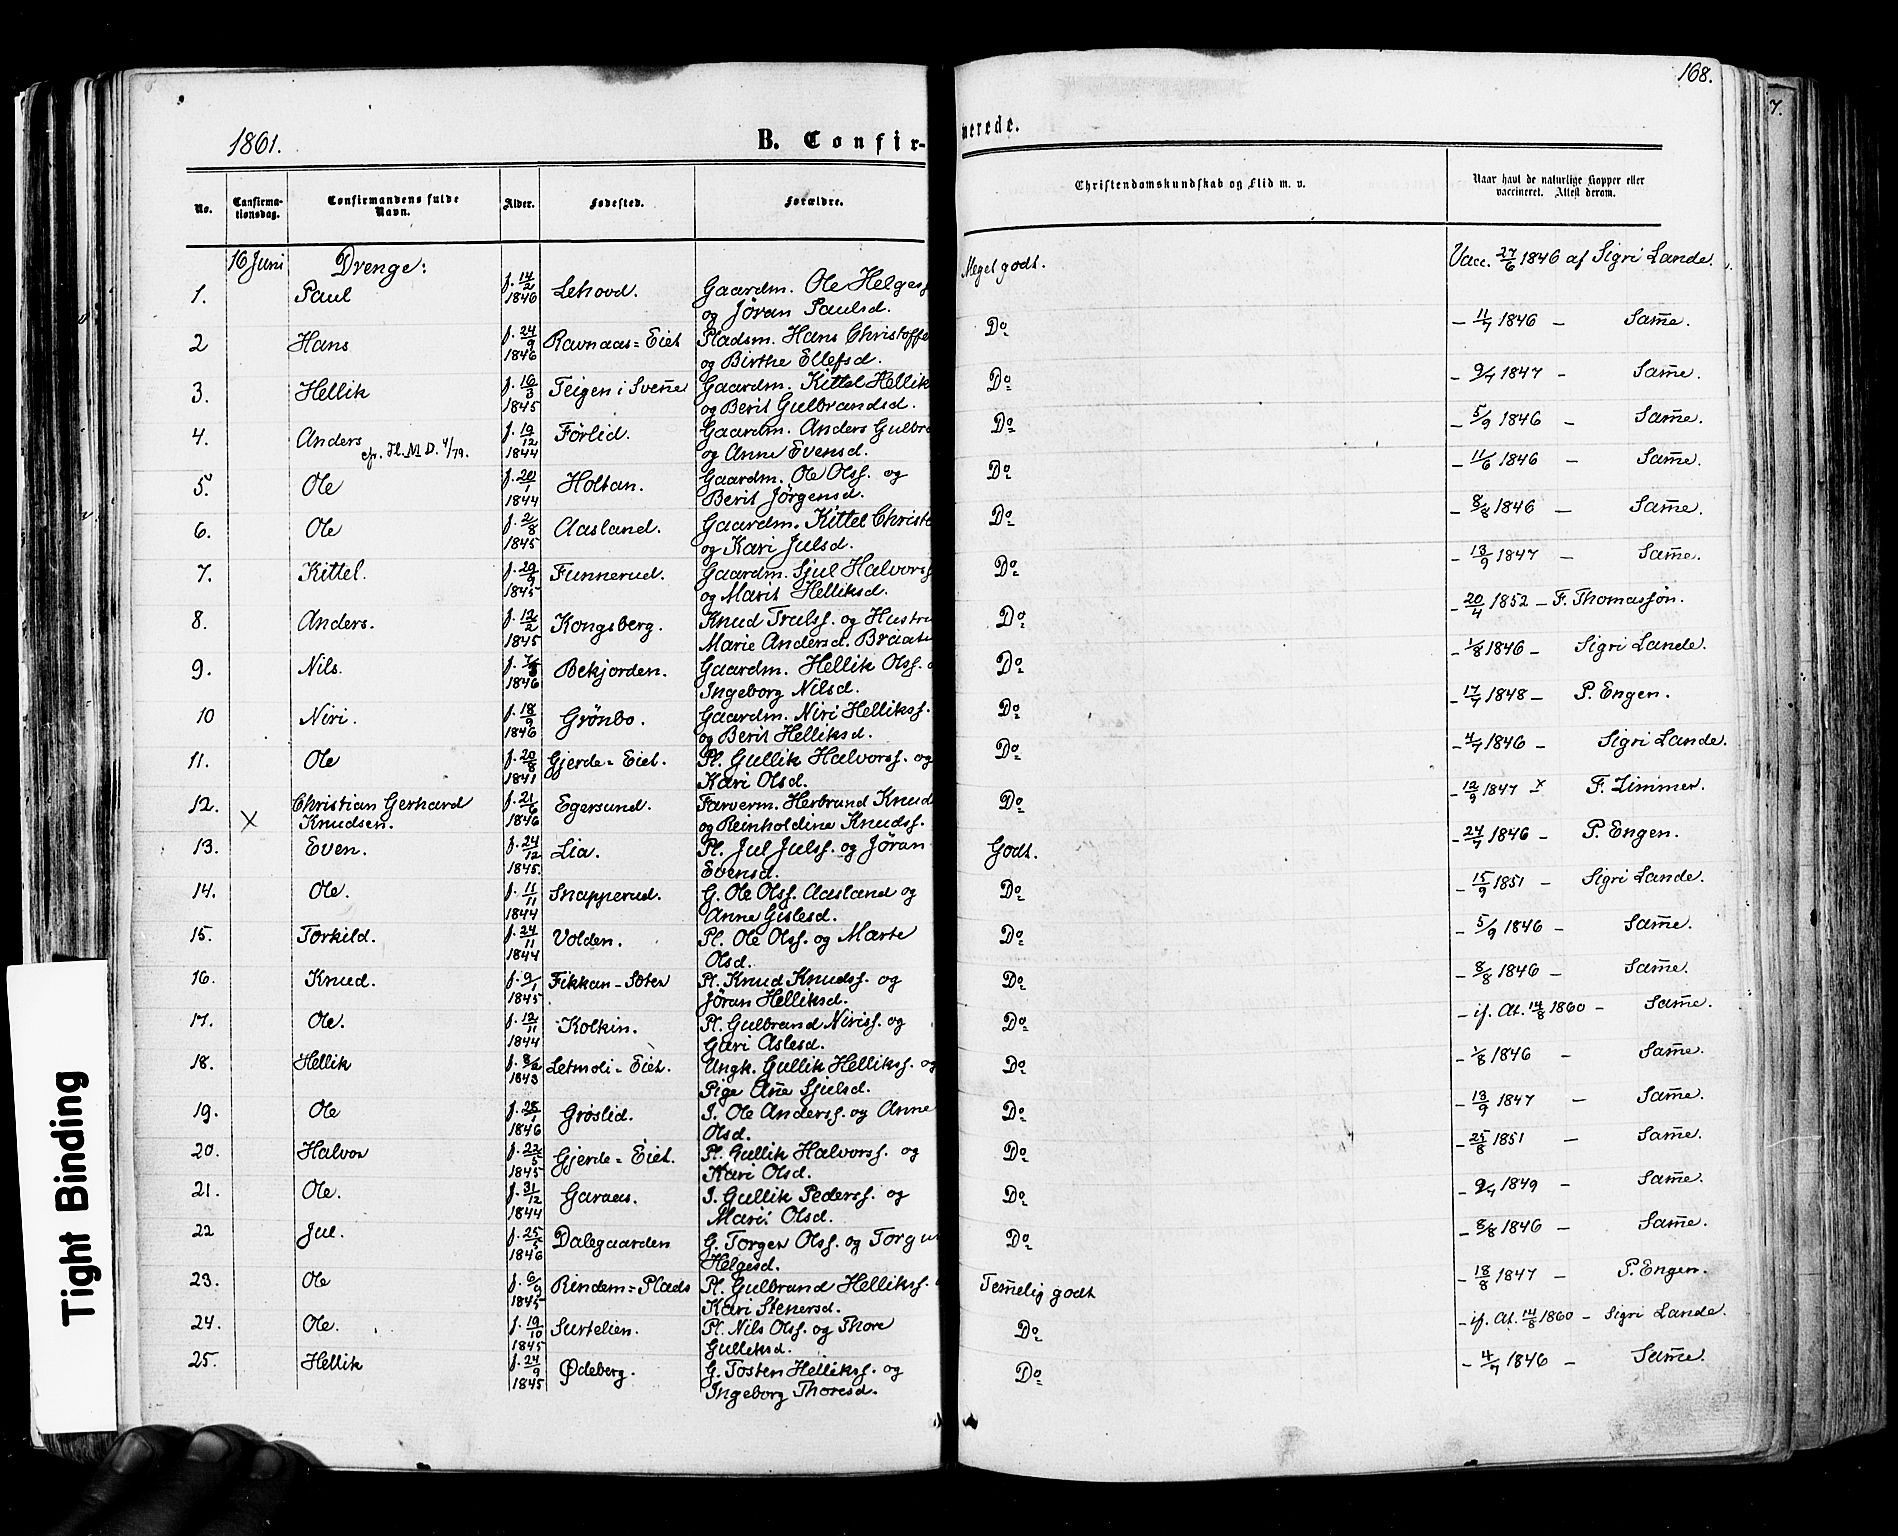 168.
7.
1861.
B. Confir-
merede.
No.
Confirma-
tionsdag.
Confirmandens fulde
Navn.
Alder.
Fødested.
Forældre.
Christendomskundskab og Flid m. v.
Naar havt de naturlige Kopper eller
vaccineret. Attest derom.
16 Juni Drenge:
1. Paul f. 14/2 1846 Lehovd. Gaardm. Ole Helgess
og Jøran Paulsd. Meget godt. Vacc. 27/6 1846 af Sigri Lande.
2 Hans f. 24/9 1846 Ravnaas=Eiet Pladsm. Hans Christoffe
og Birthe Ellefsd. Do - 11/7 1846 - Samme.
3. Hellik f. 16/3 1845 Teigen i Svenne Gaardm. Kittel Hellik
og Berit Gulbrandsd. Do - 9/7 1847 - Samme.
4. Anders f. 19/12 1844 Førlid. Gaardm. Anders Gulbra
cfr. H. M D. 4/79. og Anne Evensd. Do - 5/9 1846 - Samme.
5. Ole f. 20/1 1844 Holtan. Gaardm. Ole Olss. og
Berit Jørgensd. Do - 11/6 1846 - Samme.
6. Ole f. 2/8 1845 Aasland. Gaardm. Kittel Christo
og Kari Julsd. Do - 8/8 1846 - Samme.
7. Kittel. f. 29/9 1845 Funnerud. Gaardm. Sjul Halvorss
og Marit Helliksd. Do - 13/9 1847 - Samme.
8. Anders. f. 12/2 1845 Kongsberg. Knud Trulss. og Hustru
Marie Andersd. Braate Do - 20/4 1852 - F. Thomassøn.
9. Nils. f. 7/8 1846 Bekjorden. Gaardm. Hellik Olss. o
Ingeborg Nilsd. Do - 1/8 1846 - Sigri Lande.
10 Niri. f. 18/9 1846 Grønbo. Gaardm. Niri Hellikss.
og Berit Helliksd. Do - 17/7 1848 - P. Engen.
11. Ole f. 20/8 1841 Gjerde=Eiet. Pl. Gullik Halvorss. og
Kari Olsd. Do - 4/7 1846 - Sigri Lande.
12. Christian Gerhard f. 21/6 1846 Egersund. Farverm. Herbrand Knud
X Knudsen. og Reinholdine Knudss. Do - 12/9 1847 - x F. Zimmer.
13. Even. f. 24/12 1845. Lia. Pl. Jul Julss. og Jøran
Evensd. Godt. - 24/7 1846 - P. Engen.
14. Ole. f. 11/11 1844 Snapperud. G. Ole Olss. Aasland og
Anne Gislesd. Do - 15/9 1851 - Sigri Lande.
15. Torkild. f. 24/11 1844 Volden. Pl. Ole Olss. og Marte
Olsd. Do - 5/9 1846 - Samme.
16. Knud. f. 9/1 1845 Fikkan-Søter Pl. Knud Knudss. og
Jøran Helliksd. Do - 8/8 1846 - Samme.
17. Ole. f. 12/11 1844 Kolkin. Pl. Gulbrand Niriss. og
Guri Aslesd. Do - if. At. 14/8 1860 - Samme.
18. Hellik f. 8/2 1843 Letmoli=Eiet. Ungk. Gullik Hellikss. og
Pige Anne Sjulsd. Do - 1/8 1846 - Samme.
19. Ole f. 28/1 1846 Grøslid. I. Ole Anderss. og Anne
Olsd. Do - 13/9 1847 - Samme.
20. Halvor f. 22/5 1845 Gjerde=Eiet. Pl. Gullik Halvorss. og
Kari Olsd. Do - 25/8 1851 - Samme.
21. Ole. f. 31/12 1844 Garaas. I. Gullik Pederss. og
Mari Olsd. Do - 9/7 1849 - Samme.
22 Jul. f. 25/5 1846 Dalegaarden G. Torger Olss. og Torgu
Helgesd. Do - 8/8 1846 - Samme.
23. Ole f. 6/9 1845 Rindem=Plads Pl. Gulbrand Hellikss.
Kari Stenersd. Temmelig godt - 18/8 1847 - P. Engen.
24. Ole. f. 19/10 1845 Surtelien. Pl. Nils Olss. og Thore
Gulliksd. Do - if. At. 14/8 1860 - Sigri Lande
25. Hellik f. 24/9 1845 Ødeberg. G. Tosten Hellikss. og
Ingeborg Thoresd. Do - 4/7 1846 - Samme.
Tight Binding